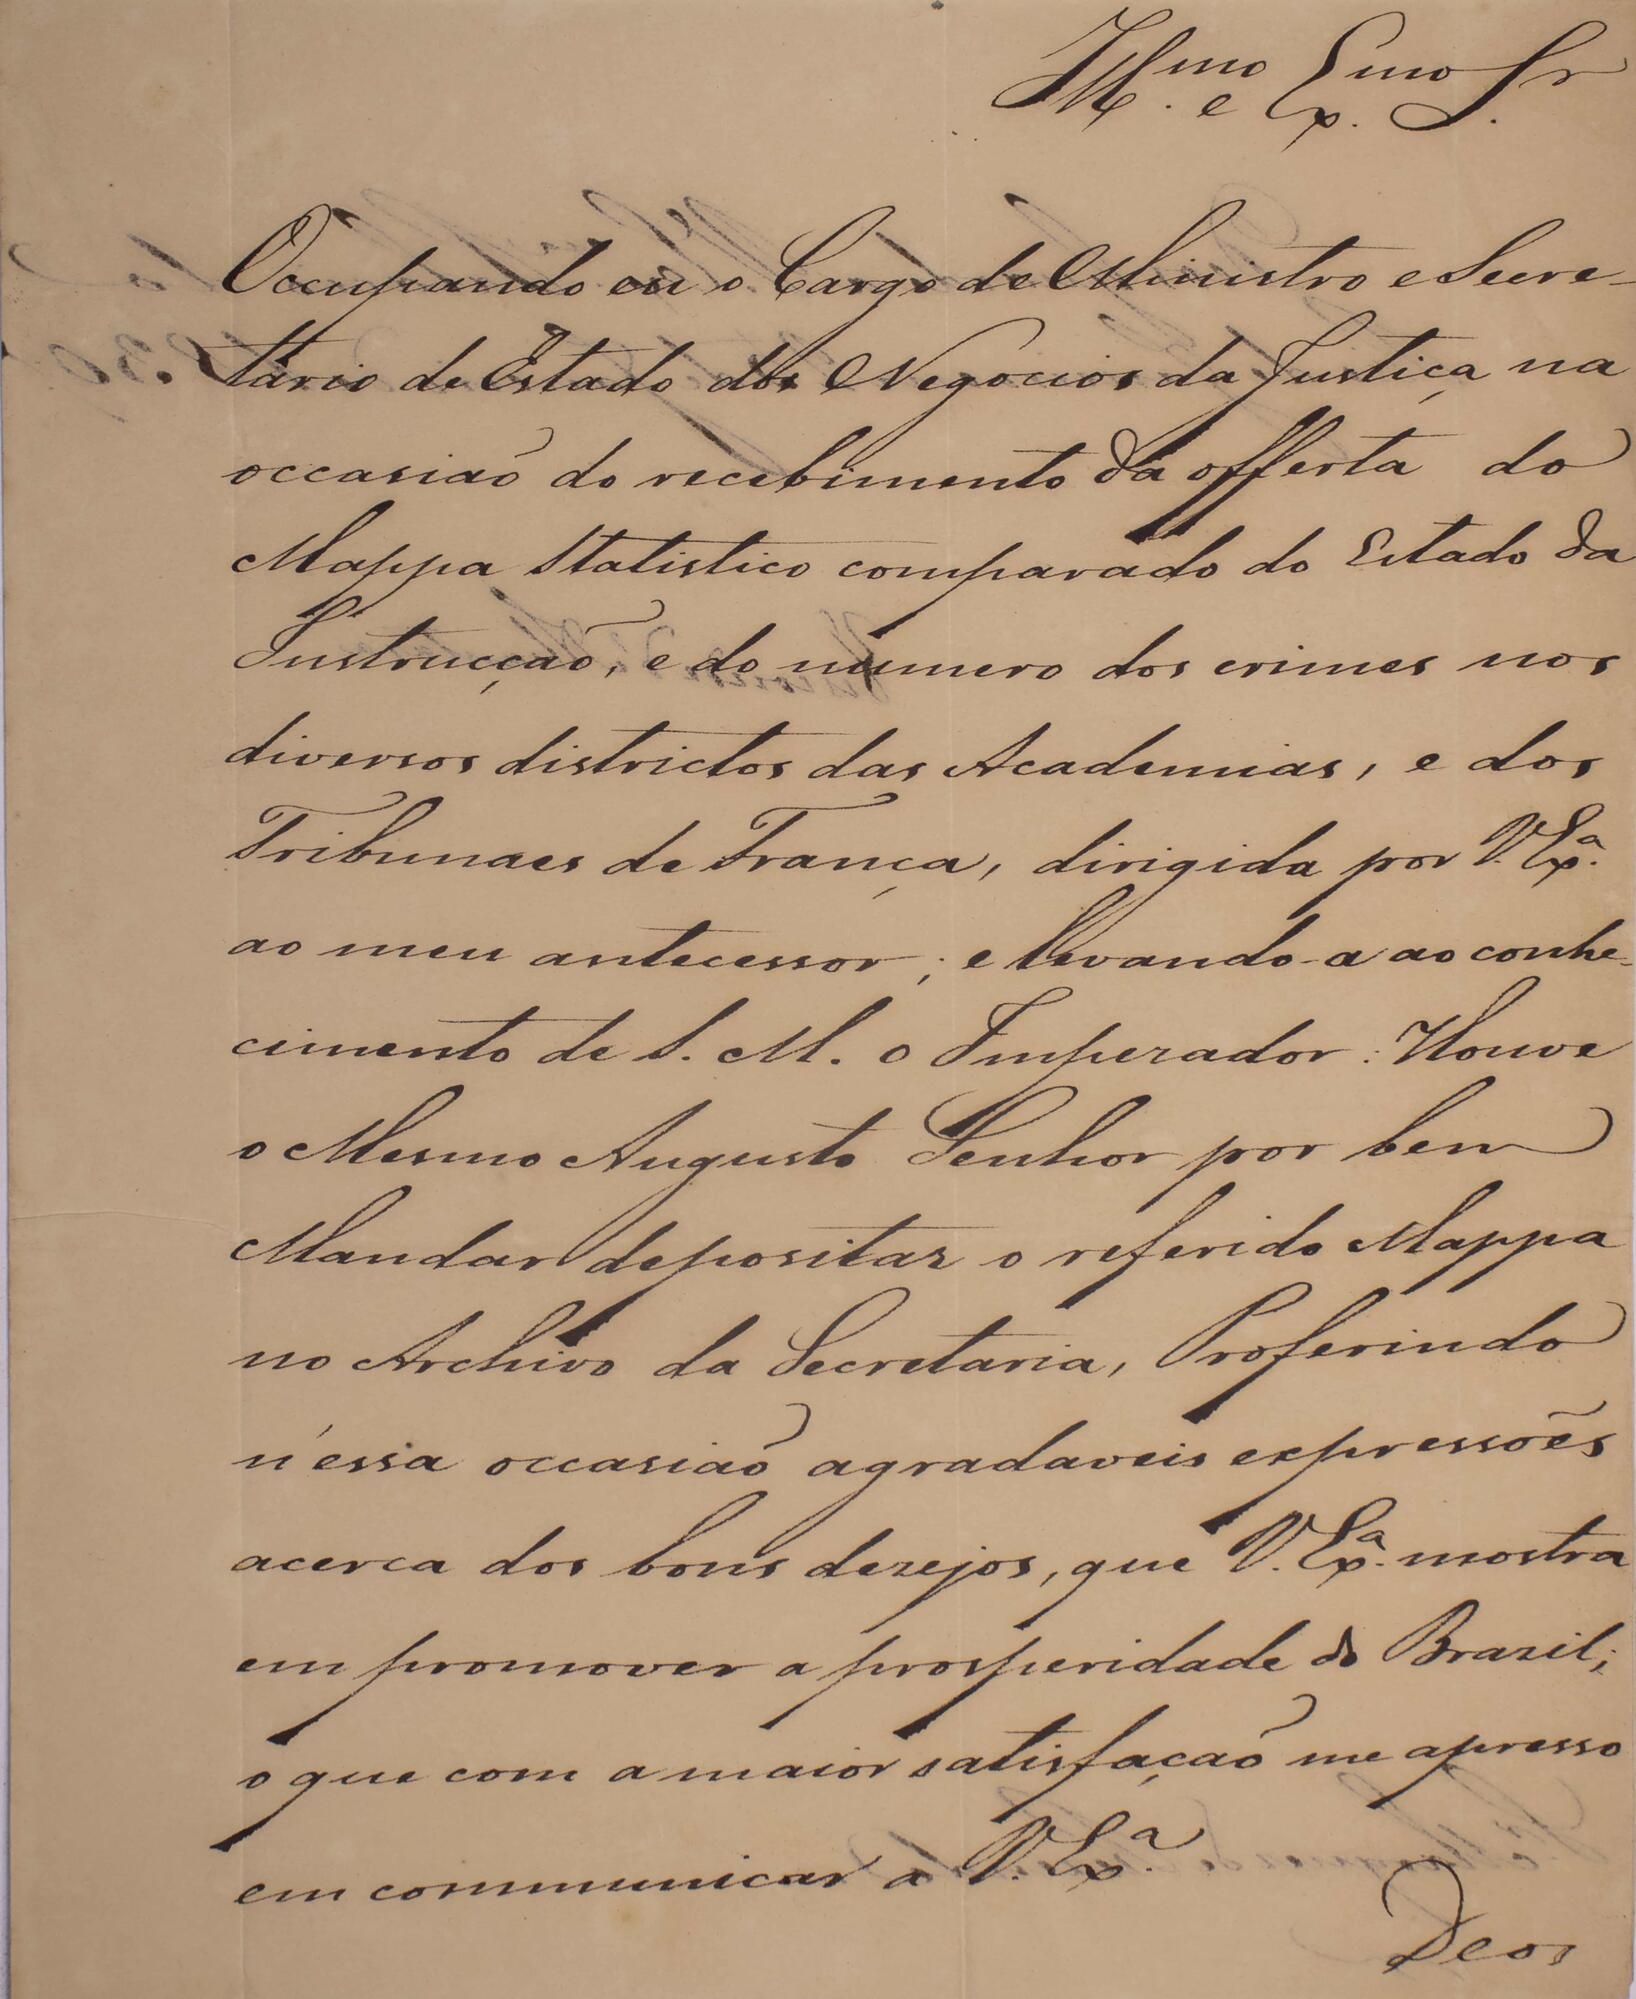 Illmo. e Exmo. Sr.
Occupando eu o Cargo de Ministro e Secre-
tario de Estado dos Negocios da Justiça na
occasiaõ do recebimento da offerta do
Mappa Statistico comparado do Estado da
Instrucçaõ, e do numero dos crimes nos
diversos districtos das Academias, e dos
Tribunaes de França, dirigida por V. Exa.
ao meu antecessor; e levando-a ao conhe-
cimento de S. M. o Imperador: Houve
o Mesmo Augusto Senhor por bem
Mandar depositar o referido Mappa
no Archivo da Secretaria, Proferindo
n'essa occasiaõ agradaveis expressões
acerca dos bons dezejos, que V. Exa. mostra
em promover a prosperidade do Brazil;
o que com a maior satisfaçaõ me apresso
em communicar a V. Exa.
Deos